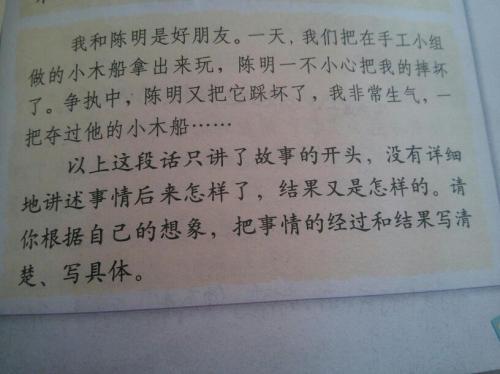 我和陈明是好朋友。一天，我们把在手工小组
做的小木船拿出来玩，陈明一不小心把我的摔坏
了。争执中，陈明又把它踩坏了，我非常生气，一
把夺过他的小木船……
以上这段话只讲了故事的开头，没有详细
地讲述事情后来怎样了，结果又是怎样的。请
你根据自己的想象，把事情的经过和结果写清
楚、写具体。